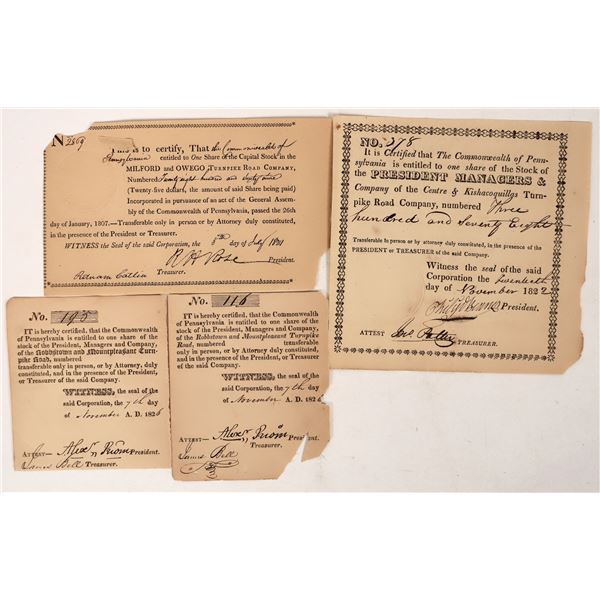 N 2869
This is to certify, That the Commonwealth of
Pennsylvania entitled to One Share of the Capital Stock in the
MILFORD and OWEGO TURNPIKE ROAD COMPANY,
Numbered Twenty eight hundred and sixty nine
(Twenty-five dollars, the amount of said Share being paid)
Incorporated in pursuance of an act of the General Assem-
bly of the Commonwealth of Pennsylvania, passed the 26th
day of January, 1807.-Transferable only in person or by Attorney duly constituted,
in the presence of the President or Treasurer.
WITNESS the Seal of the said Corporation, the 5th day of July
R H Rose President.
Putnam Catlin Treasurer.
NO. 378
It is Certified that The Commonwealth of Penn-
sylvania is entitled to one share of the Stock of
the PRESIDENT MANAGERS &
Company of the Centre & Kishacoquillas Turn-
pike Road Company, numbered Three
hundred and Seventy Eight
Transferable In person or by attorney duly constituted, in the presence of the
PRESIDENT or TREASURER of the said company.
Witness the seal of the said
Corporation the twentieth
day of November 1822
President.
ATTEST Potter TREASURER.
No. 195
IT is hereby certified, that the Commonwealth
of Pennsylvania is entitled to one share of the
stock of the President, Managers and Company,
of the Robbstown and Mountpleasant Turn-
pike Road, numbered
transferable only in person, or by Attorney, duly
constituted, and in the presence of the President,
or Treasurer of the said Company.
WITNESS, the seal of the
said Corporation, the 7th day
of November A. D. 1826
ATTEST— Alexr Plumer President.
James Bell Treasurer.
No. 116
IT is hereby certified, that the Commonwealth
of Pennsylvania is entitled to one share of the
stock of the President, Managers, and Company,
of the Robbstown and Mountpleasant Turnpike
Road, numbered transferable
only in person, or by Attorney duly constituted,
and in the presence of the President, or Treasurer
of the said company.
WITNESS, the seal of the
said Corporation, the 7th day
of November A. D. 1826
ATTEST— Alexr Plumer President.
James Bell Treasurer.